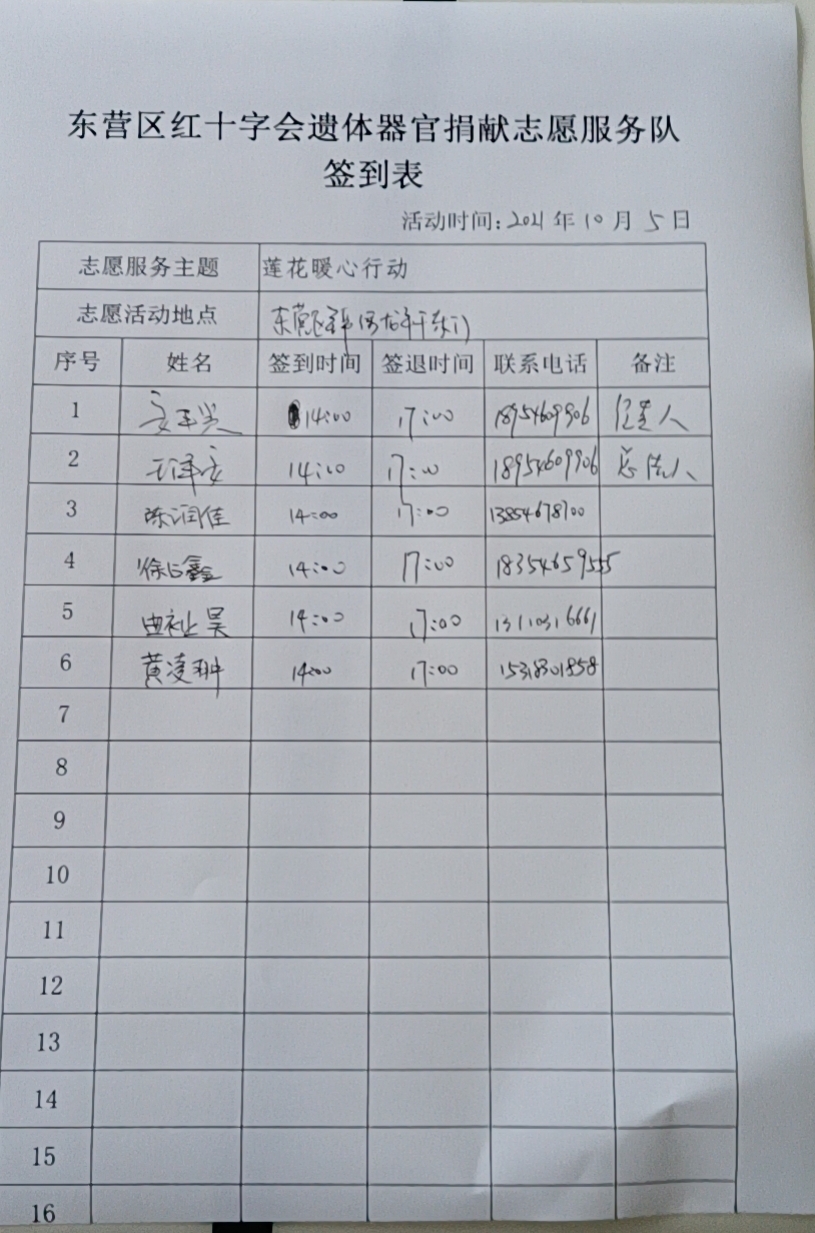 东营区红十字会遗体器官捐献志愿服务队
签到表
活动时间:2021年10月5日
志愿服务主题 莲花暖心行动
志愿活动地点 东营区
序号 姓名 签到时间 签退时间 联系电话 备注
1 14:00 17:00 18954609906 人
2 14:00 17:00 18954609906 人
3 陈润佳 14:00 17:00 13854678700
4 徐 鑫 14:00 17:00 18354659555
5 曲祉昊 14:00 17:00 13110316661
6 黄凌翀 14:00 17:00 15318301858
7
8
9
10
11
12
13
14
15
16